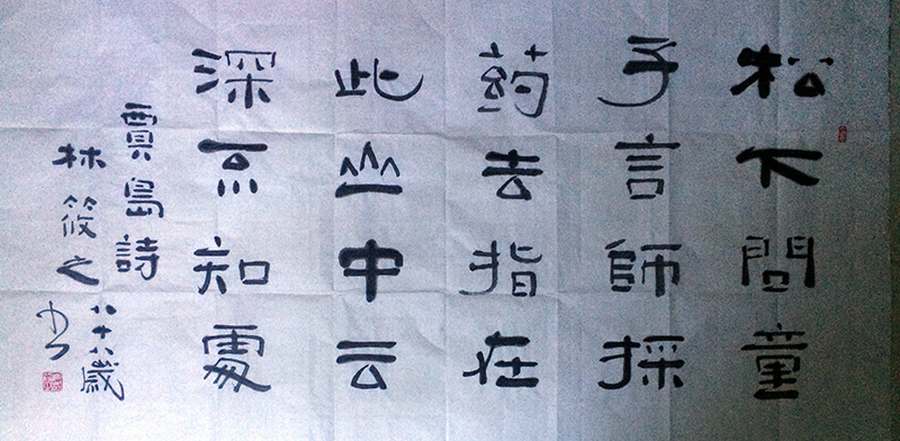 松下問童
子言師採
药去指在
此山中云
深不知處
賈島詩
林筱之
八十八歲
书